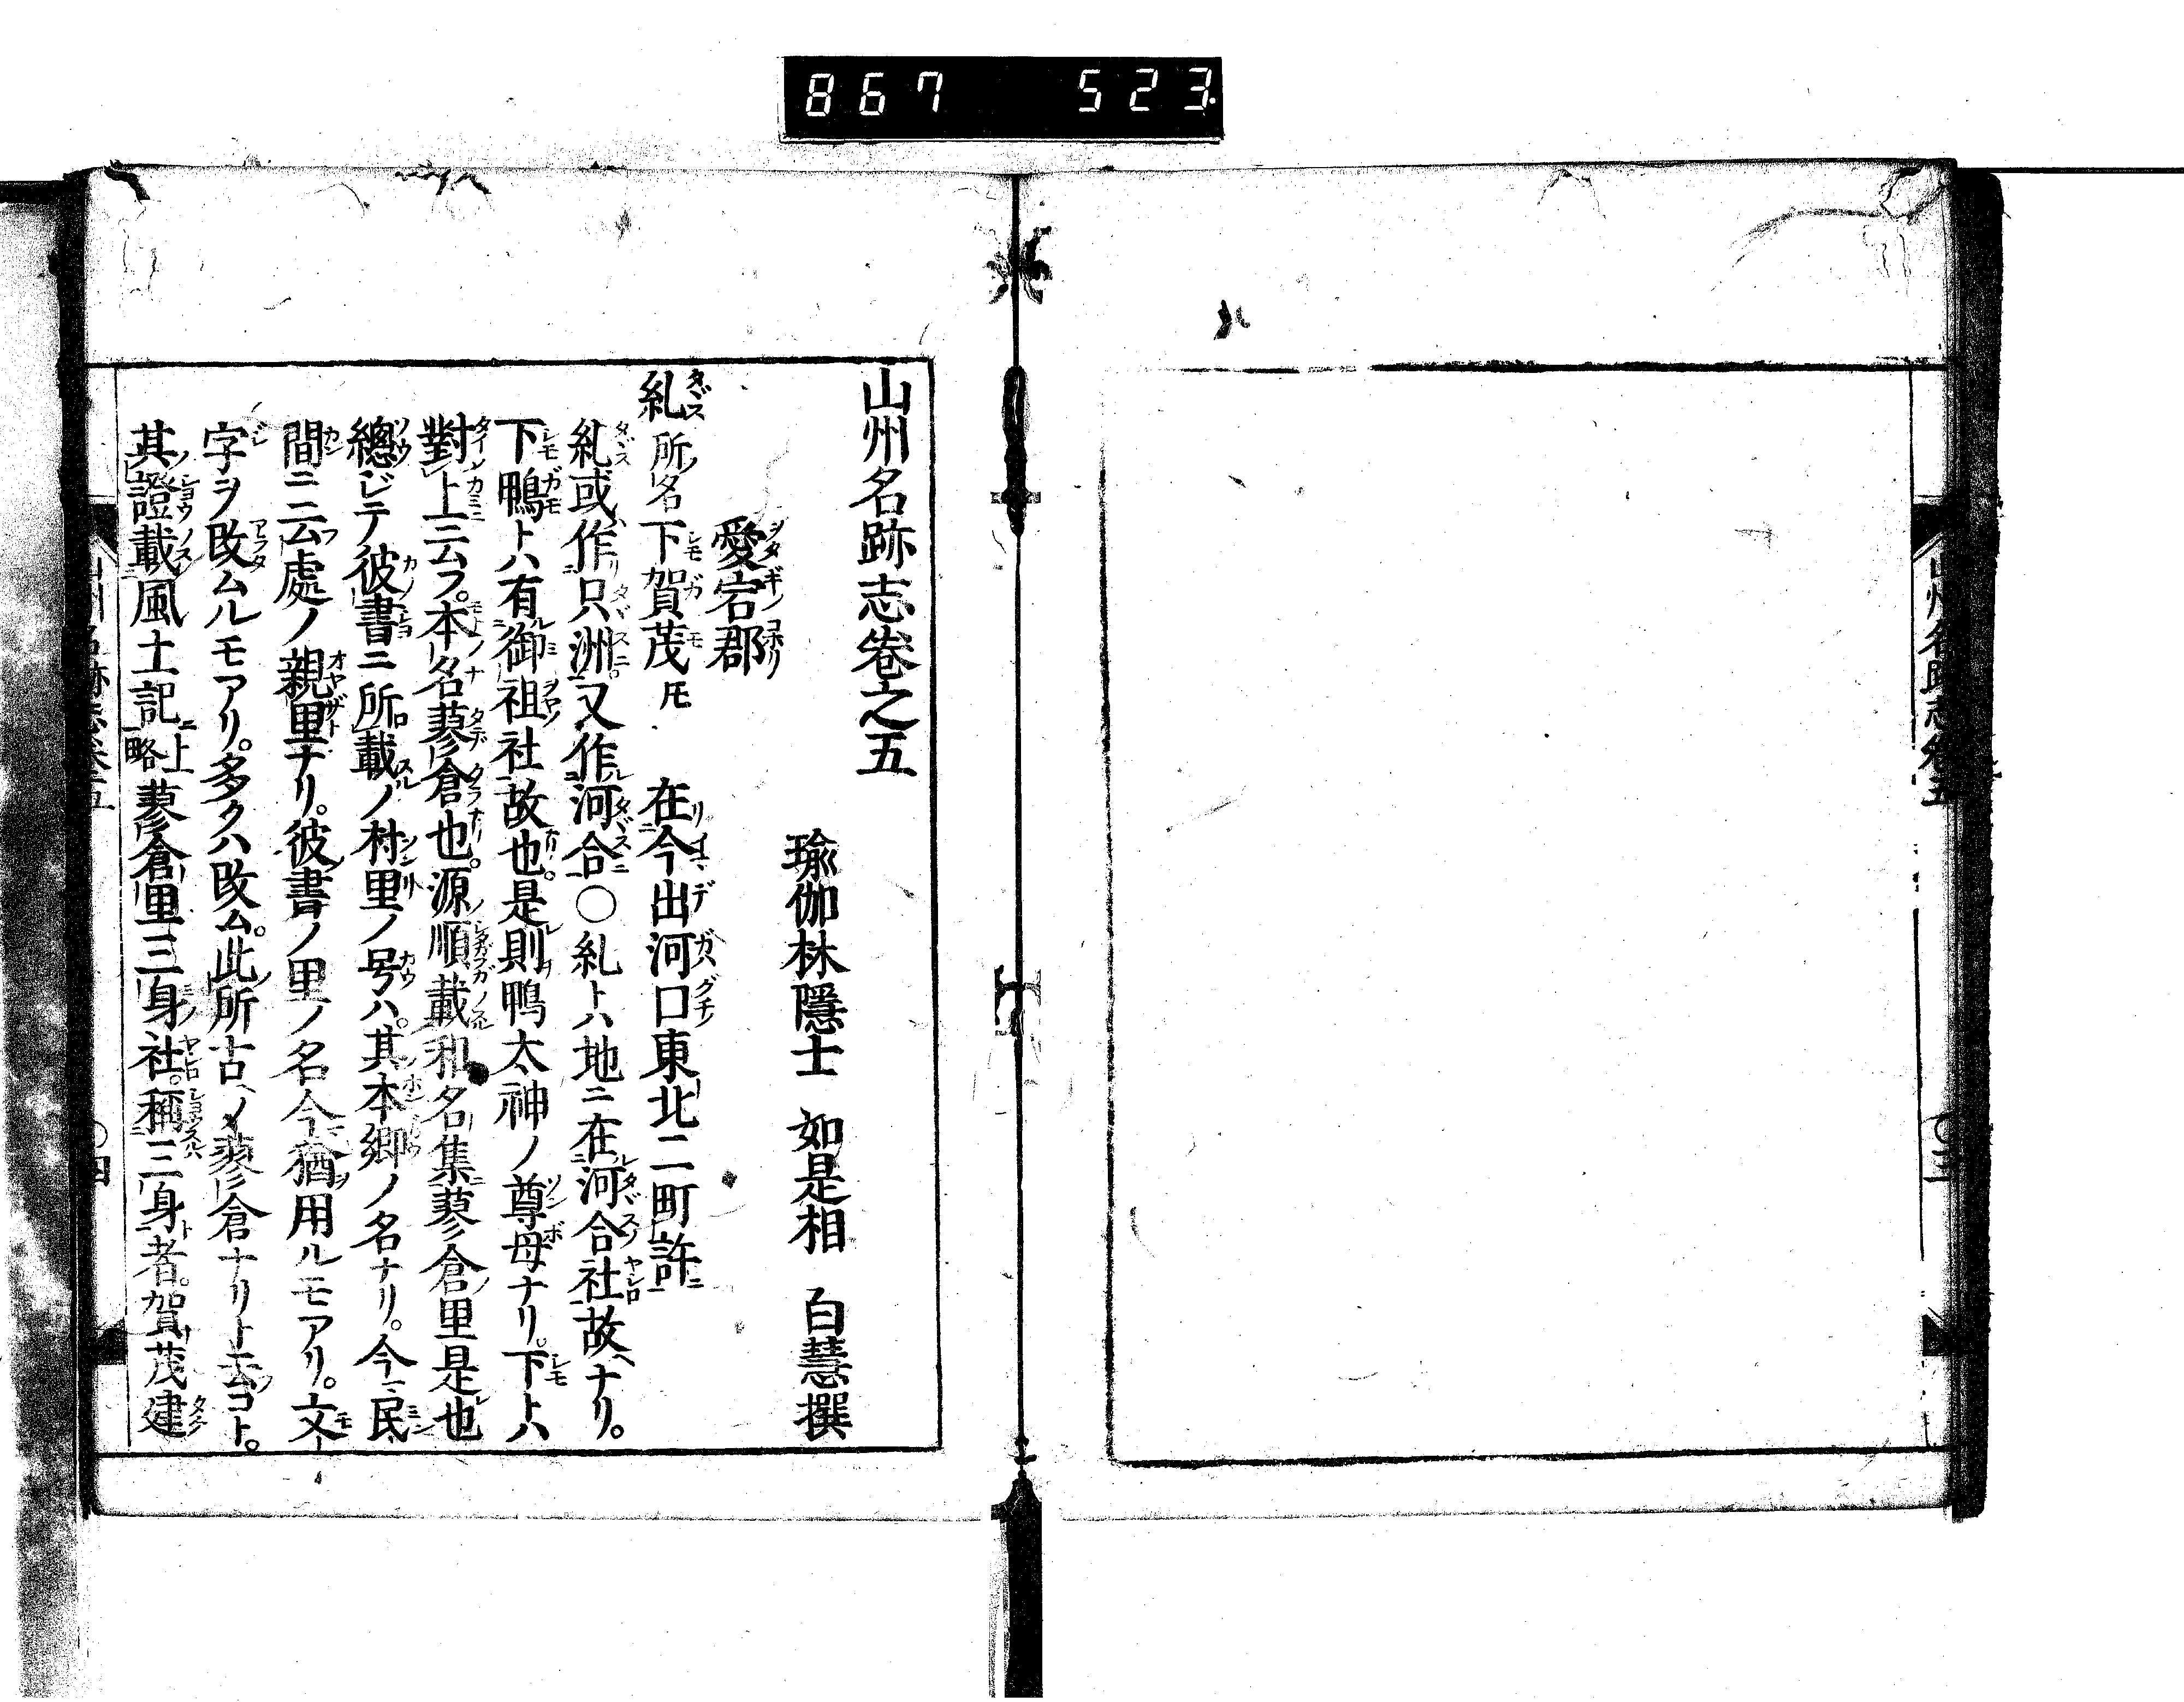 867 523
山州名跡志卷五
山州名跡志卷之五
瑜伽林隱士 如是相 白慧撰
愛宕郡
糺 所名下賀茂 在今出河口東北二町許
糺或作只洲又作河合〇糺トハ地ニ在河合社故ナリ。
下鴨トハ有御祖社故也。是則鴨太神ノ尊母ナリ。下トハ
對上ニ云フ。本名蓼倉也。源順載和名集蓼倉里是也
總ジテ彼書ニ所載ノ村里ノ号ハ。其本郷ノ名ナリ。今民
間ニ云處ノ親里ナリ。彼書ノ里ノ名今猶用ルモアリ。文
字ヲ改ムルモアリ。多クハ改ム。此所古ノ蓼倉ナリト云コト。
其證載風土記上略蓼倉里三身社。稱三身者。賀茂建
山州名跡志卷五 〇四